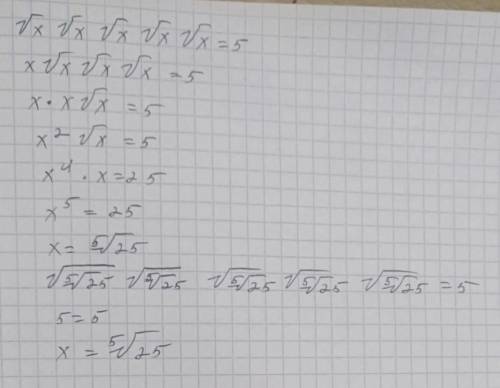 √x √x √x √x √x = 5
x √x √x √x = 5
x · x √x = 5
x² √x = 5
x⁴ · x = 25
x⁵ = 25
x = ⁵√25
√(⁵√25) √(⁵√25) √(⁵√25) √(⁵√25) √(⁵√25) = 5
5 = 5
x = ⁵√25